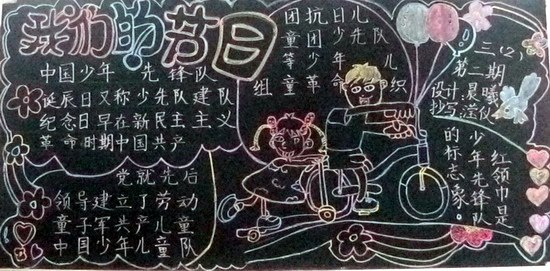 我们的节日
中国少年先锋队
诞辰日又称少先队建队
纪念日早在新民主主义
革命时期中国共产
党就先后
领导建立了劳动
童子军共产儿童
团抗日儿
童团少先队
等少年儿
童革命组织
中国少年儿童队
三(2)
第二期
设计:晨曦
抄写:滢仪
红领巾是
少年先锋队
的标志象。